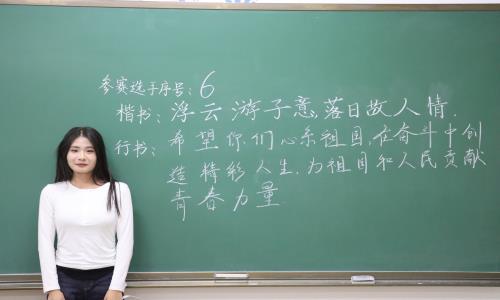 参赛选手序号：6
楷书：浮云游子意，落日故人情.
行书：希望你们心系祖国，在奋斗中创
造精彩人生，为祖国和人民贡献
青春力量